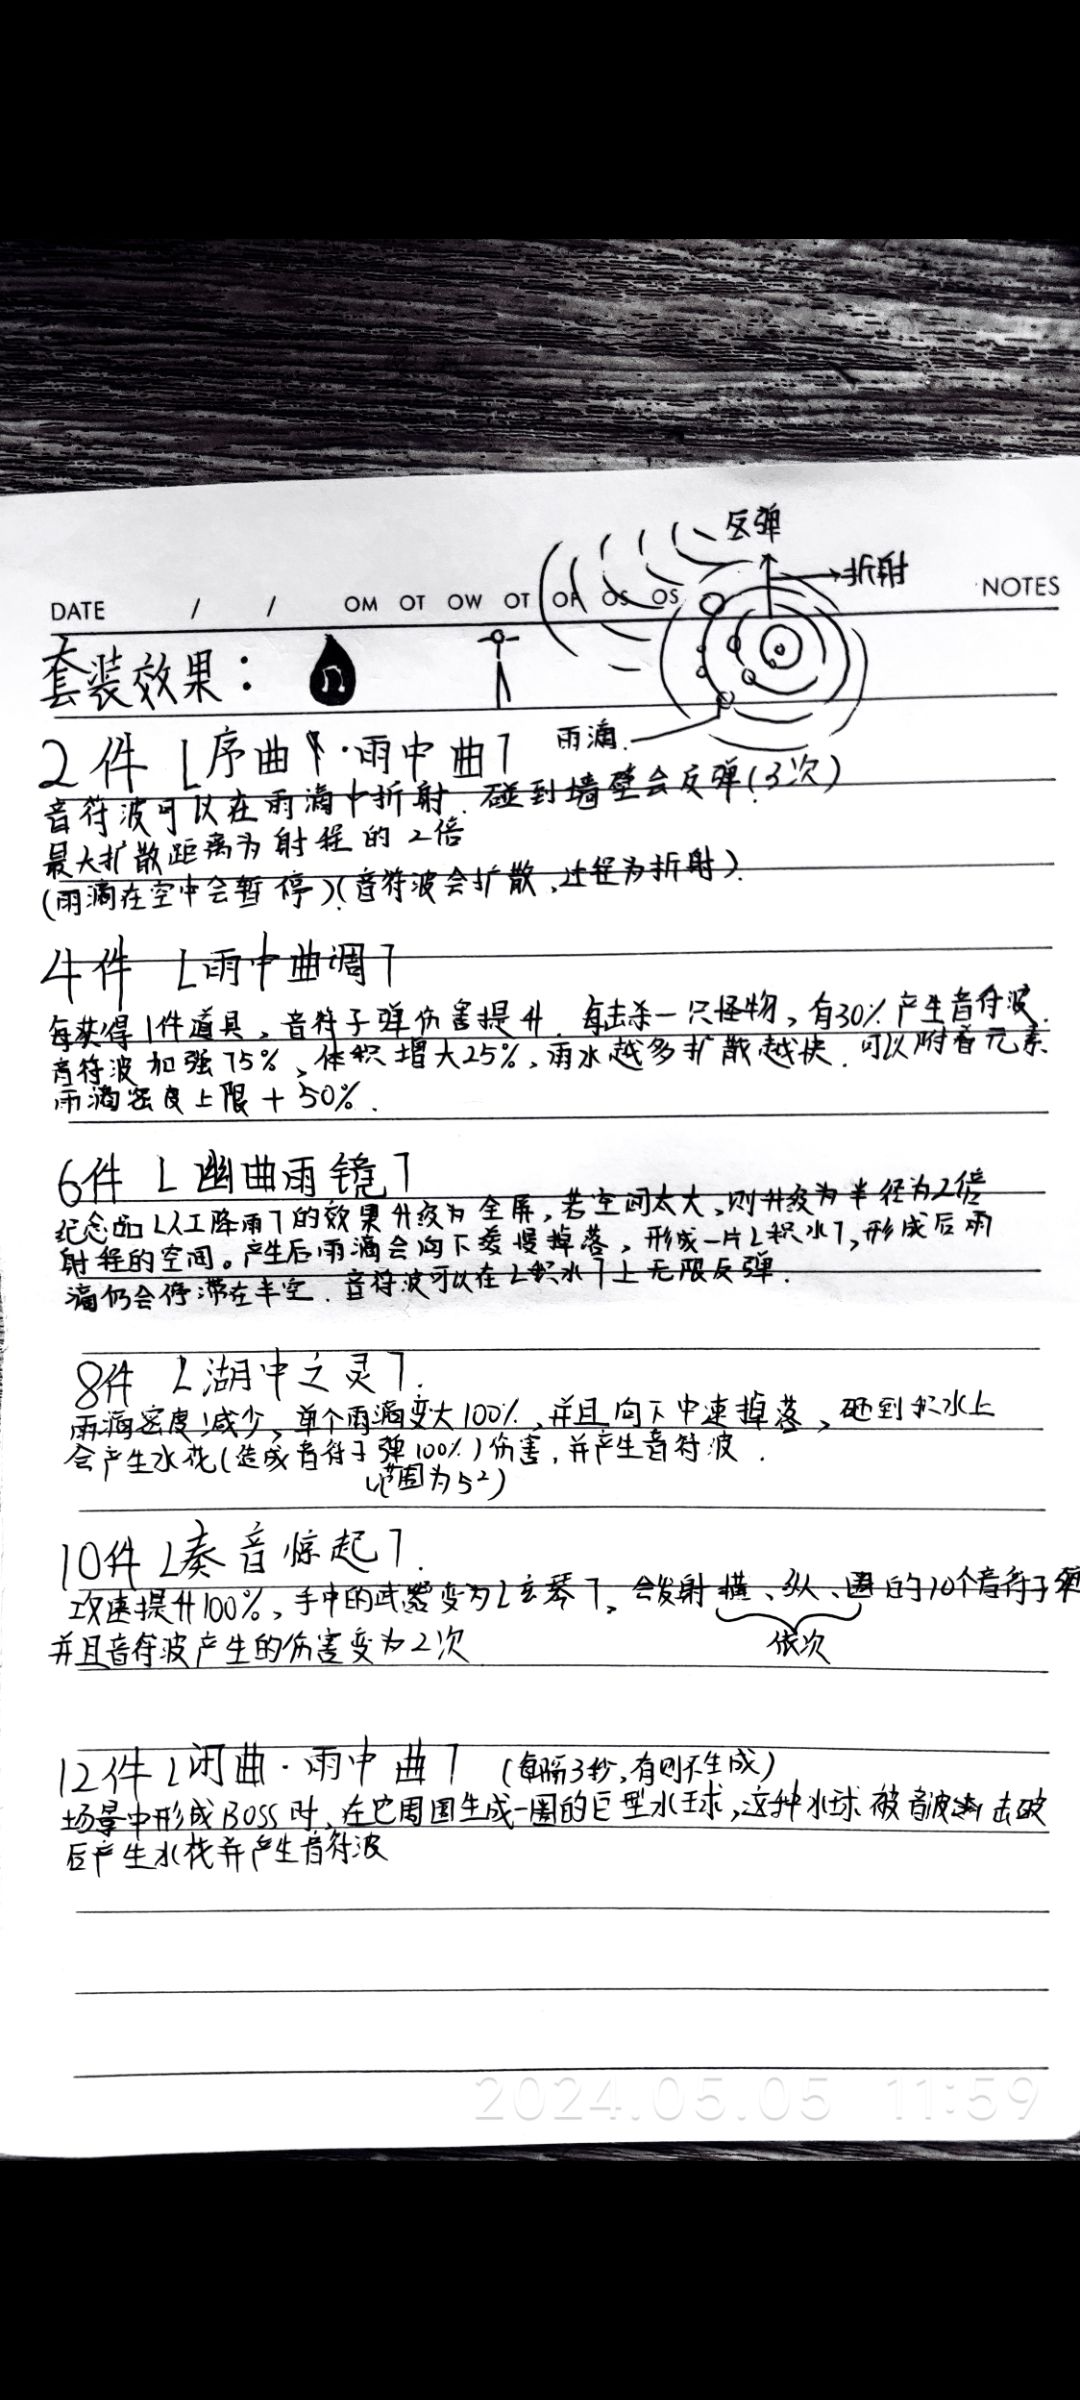 反弹
折射
DATE / / OM OT OW OT OF OS OS NOTES
套装效果：
雨滴
2件 L序曲·雨中曲7
音符波可以在雨滴中折射.碰到墙壁会反弹(3次)
最大扩散距离为射程的2倍
(雨滴在空中会暂停)(音符波会扩散,过径为折射).
4件 L雨中曲调7
每获得1件道具、音符子弹伤害提升.每击杀一只怪物，有30%产生音符波.
音符波加强75%、体积增大25%，雨水越多扩散越快.可以附着元素
雨滴密度上限+50%.
6件 L幽曲雨镜7
纪念品L人工降雨7的效果升级为全屏，若空间太大，则升级为半径为2倍
射程的空间。产生后雨滴会向下缓慢掉落，形成一片L积水7,形成后雨
滴仍会停滞在半空.音符波可以在L积水7上无限反弹.
8件 L湖中之灵7.
雨滴密度减少，单个雨滴变大100%，并且向下中速掉落，砸到积水上
会产生水花(造成音符子弹100%)伤害，并产生音符波.
(范围为5²)
10件L奏音惊起7.
攻速提升100%，手中的武器变为L玄琴7，会发射横、纵、圆的10个音符子弹
依次
并且音符波产生的伤害变为2次
12件L闭曲·雨中曲7 (每隔3秒,有则不生成)
场景中形成BOSS时，在它周围生成一圈的巨型水球，这种水球被音波击破
后产生水花并产生音符波
2024.05.05 11:59